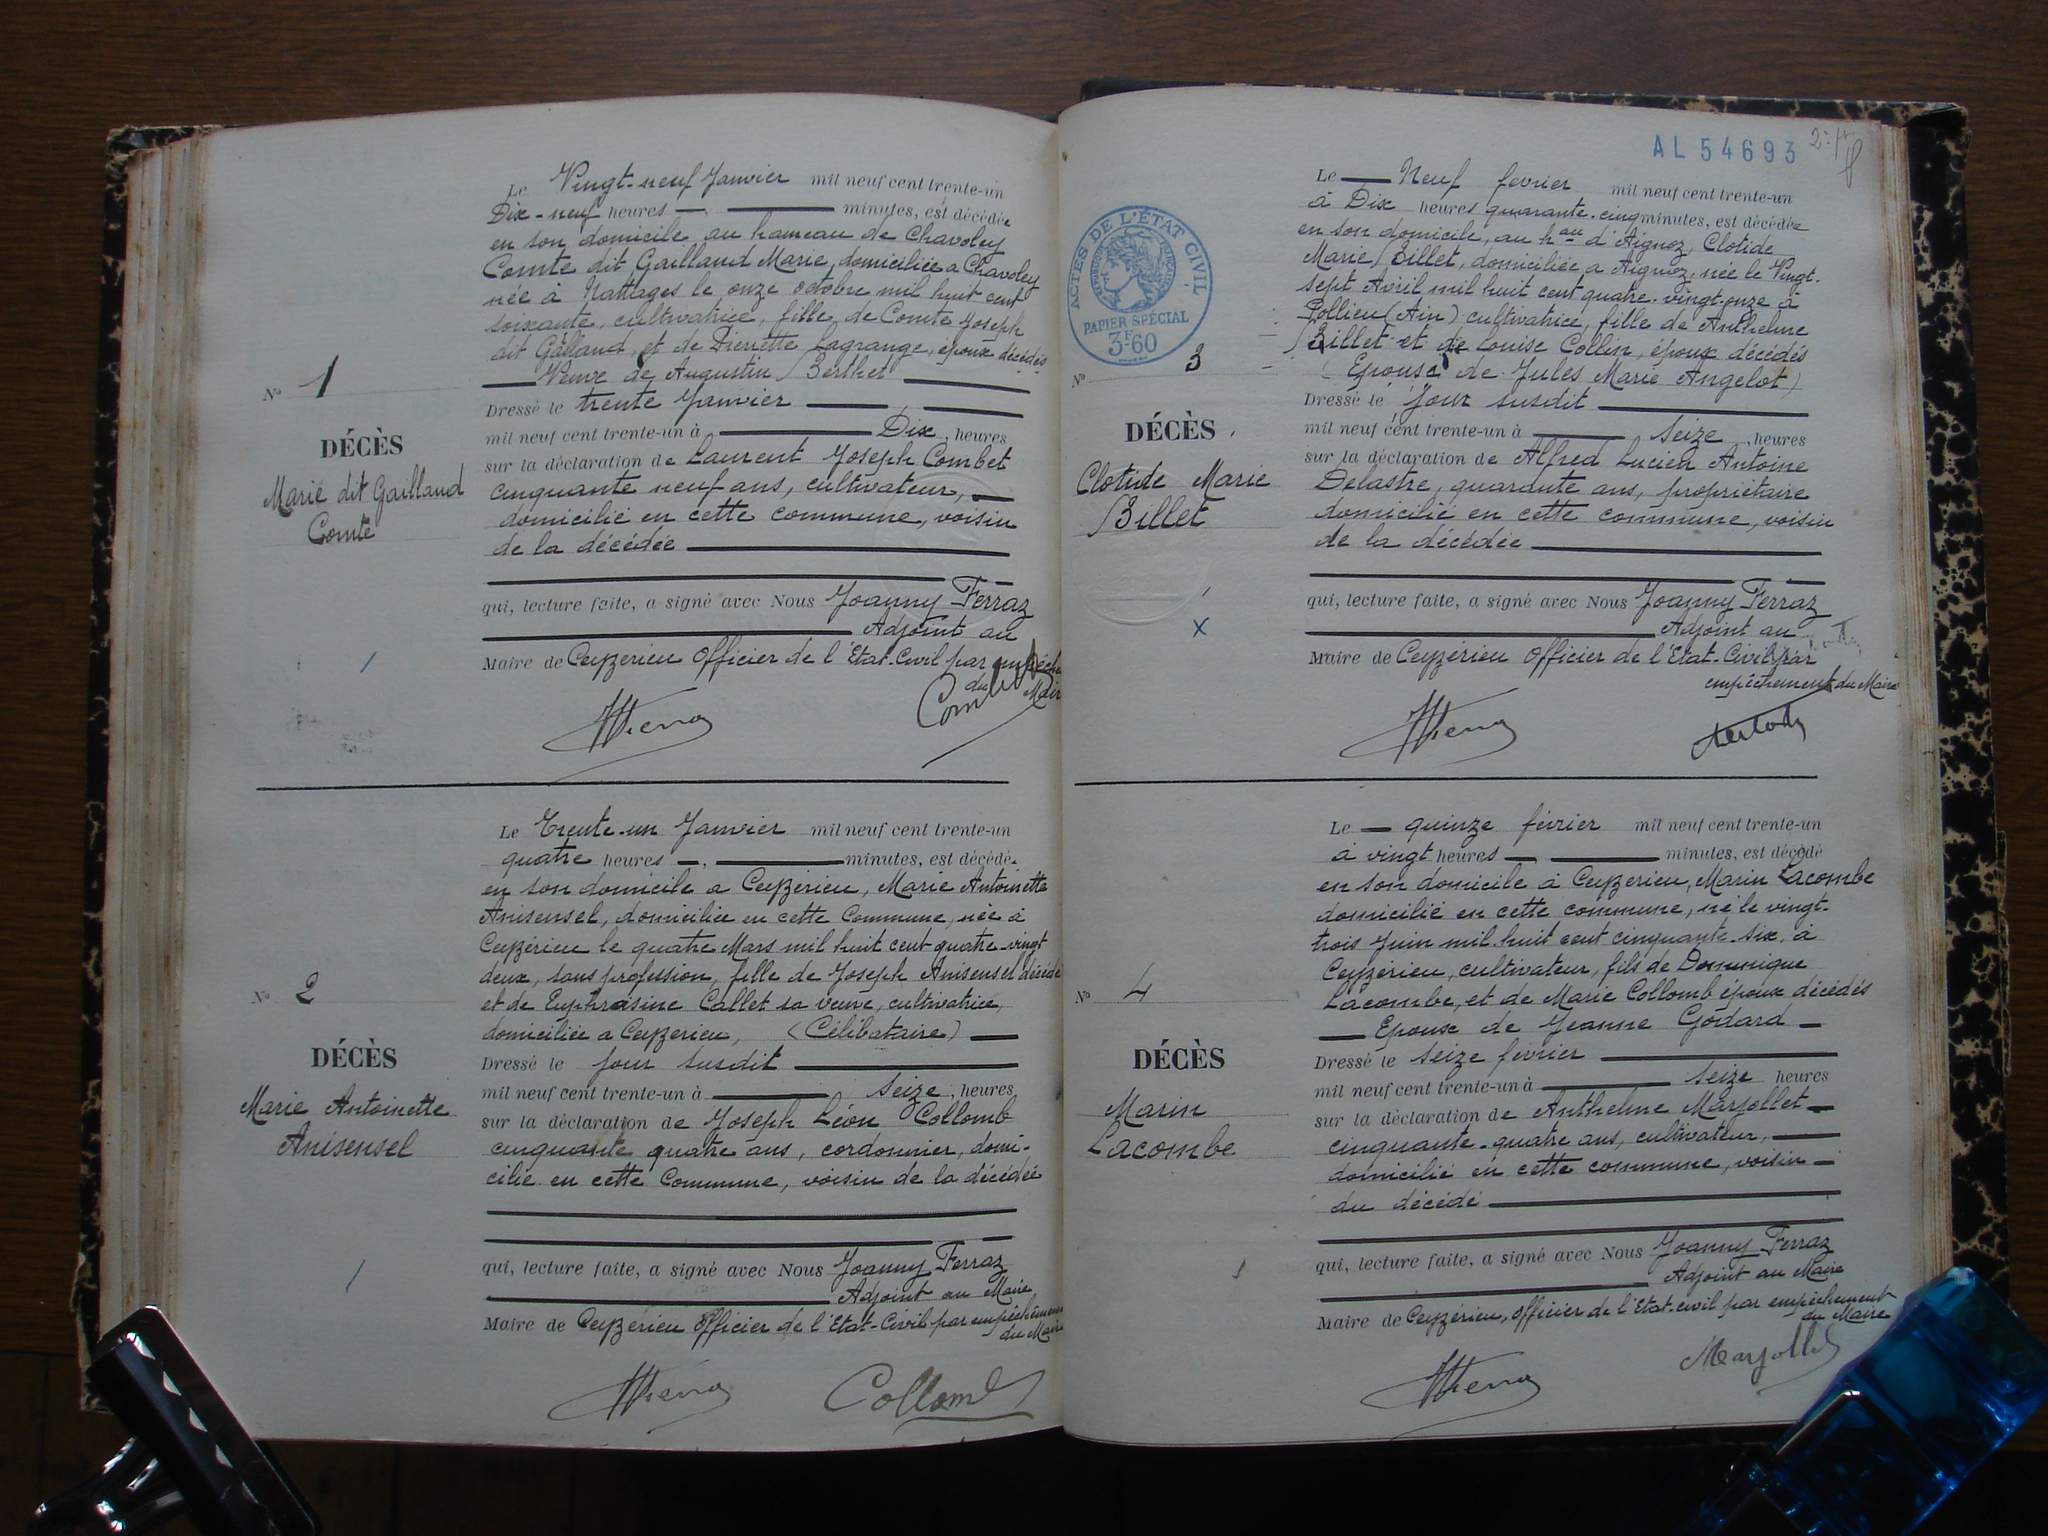 Le Vingt-neuf Janvier mil neuf cent trente-un
Dix-neuf heures minutes, est décédée
en son domicile au hameau de Chavoley
Comte dit Gailland Marie, domiciliée a Chavoley
née à Nattages le onze octobre mil huit cent
soixante, cultivatrice, fille de Comte Joseph
dit Galland, et de Pierrette Lagrange, époux décédés
Veuve de Augustin Berthet
No 1
DÉCÈS
Marie dit Gailland
Comte
Dressé le trente Janvier
mil neuf cent trente-un à Dix, heures
sur la déclaration de Laurent Joseph Combet
cinquante neuf ans, cultivateur,
domicilié en cette commune, voisin
de la décédée
qui, lecture faite, a signé avec Nous Joanny Ferraz
Adjoint au
Maire de Ceyzérieu Officier de l'Etat-Civil par
du Maire
Le Trente-un Janvier mil neuf cent trente-un
quatre heures minutes, est décédé
en son domicile a Ceyzérieu, Marie Antoinette
Anisensel, domiciliée en cette Commune, née à
Ceyzérieu le quatre Mars mil huit cent quatre-vingt
deux, sans profession, fille de Joseph Anisensel décédé
et de Euphrasine Callet sa veuve, cultivatrice,
domiciliée a Ceyzerieu, (Célibataire)
No 2
DÉCÈS
Marie Antoinette
Anisensel
Dressé le jour susdit
mil neuf cent trente-un à seize, heures
sur la déclaration de Joseph Léon Collomb
cinquante quatre ans, cordonnier, domi-
cilié en cette Commune, voisin de la décédée
qui, lecture faite, a signé avec Nous Joanny Ferraz
Adjoint au Maire
Maire de Ceyzerieu Officier de l'Etat-Civil par empêchement
du Maire
Collomb
AL 54693
ACTES DE L'ÉTAT CIVIL
PAPIER SPÉCIAL
3F60
Le Neuf fevrier mil neuf cent trente-un
à Dix heures quarante-cinq minutes, est décédée
en son domicile, au hau d'Aignoz, Clotide
Marie Billet, domiciliée a Aignoz, née le Vingt-
sept Avril mil huit cent quatre-vingt-onze à
Pollieu (Ain) cultivatrice, fille de Anthelme
Billet et de Louise Collin, époux décédés
(Epouse de Jules Marie Angelot)
No 3
DÉCÈS
Clotide Marie
Billet
Dressé le jour susdit
mil neuf cent trente-un à seize, heures
sur la déclaration de Alfred Lucien Antoine
Delastre, quarante ans, propriétaire
domicilié en cette commune, voisin
de la décédée
qui, lecture faite, a signé avec Nous Joanny Ferraz
Adjoint au
Maire de Ceyzérieu Officier de l'Etat-Civil par
empêchement du Maire
Le quinze février mil neuf cent trente-un
à vingt heures minutes, est décédé
en son domicile à Ceyzerieu, Marin Lacombe
domicilié en cette commune, né le vingt-
trois Juin mil huit cent cinquante-six, à
Ceyzérieu, cultivateur, fils de Dominique
Lacombe, et de Marie Collomb époux décédés
Epoux de Jeanne Godard
No 4
DÉCÈS
Marin
Lacombe
Dressé le seize février
mil neuf cent trente-un à seize heures
sur la déclaration de Anthelme Marjollet
cinquante-quatre ans, cultivateur,
domicilié en cette commune, voisin
du décédé
qui, lecture faite, a signé avec Nous Joanny Ferraz
Adjoint au Maire
Maire de Ceyzérieu, Officier de l'Etat-civil par empêchement
du Maire
Marjollet